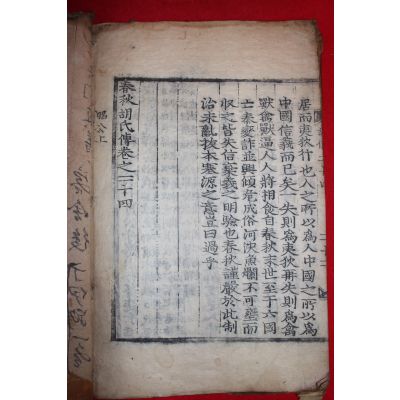 居而夷狄行也人之所以爲人中國之所以爲
中國信義而已矣一失則爲夷狄再失則爲禽
獸禽獸逼人人將相食自春秋末世至于六國
亡秦變詐並興傾危成俗河決魚爛不可壅而
収之皆失信棄義之明驗也春秋謹嚴於此制
治未亂拔本塞源之意豈曰過乎
春秋胡氏傳卷之二十四
昭公上